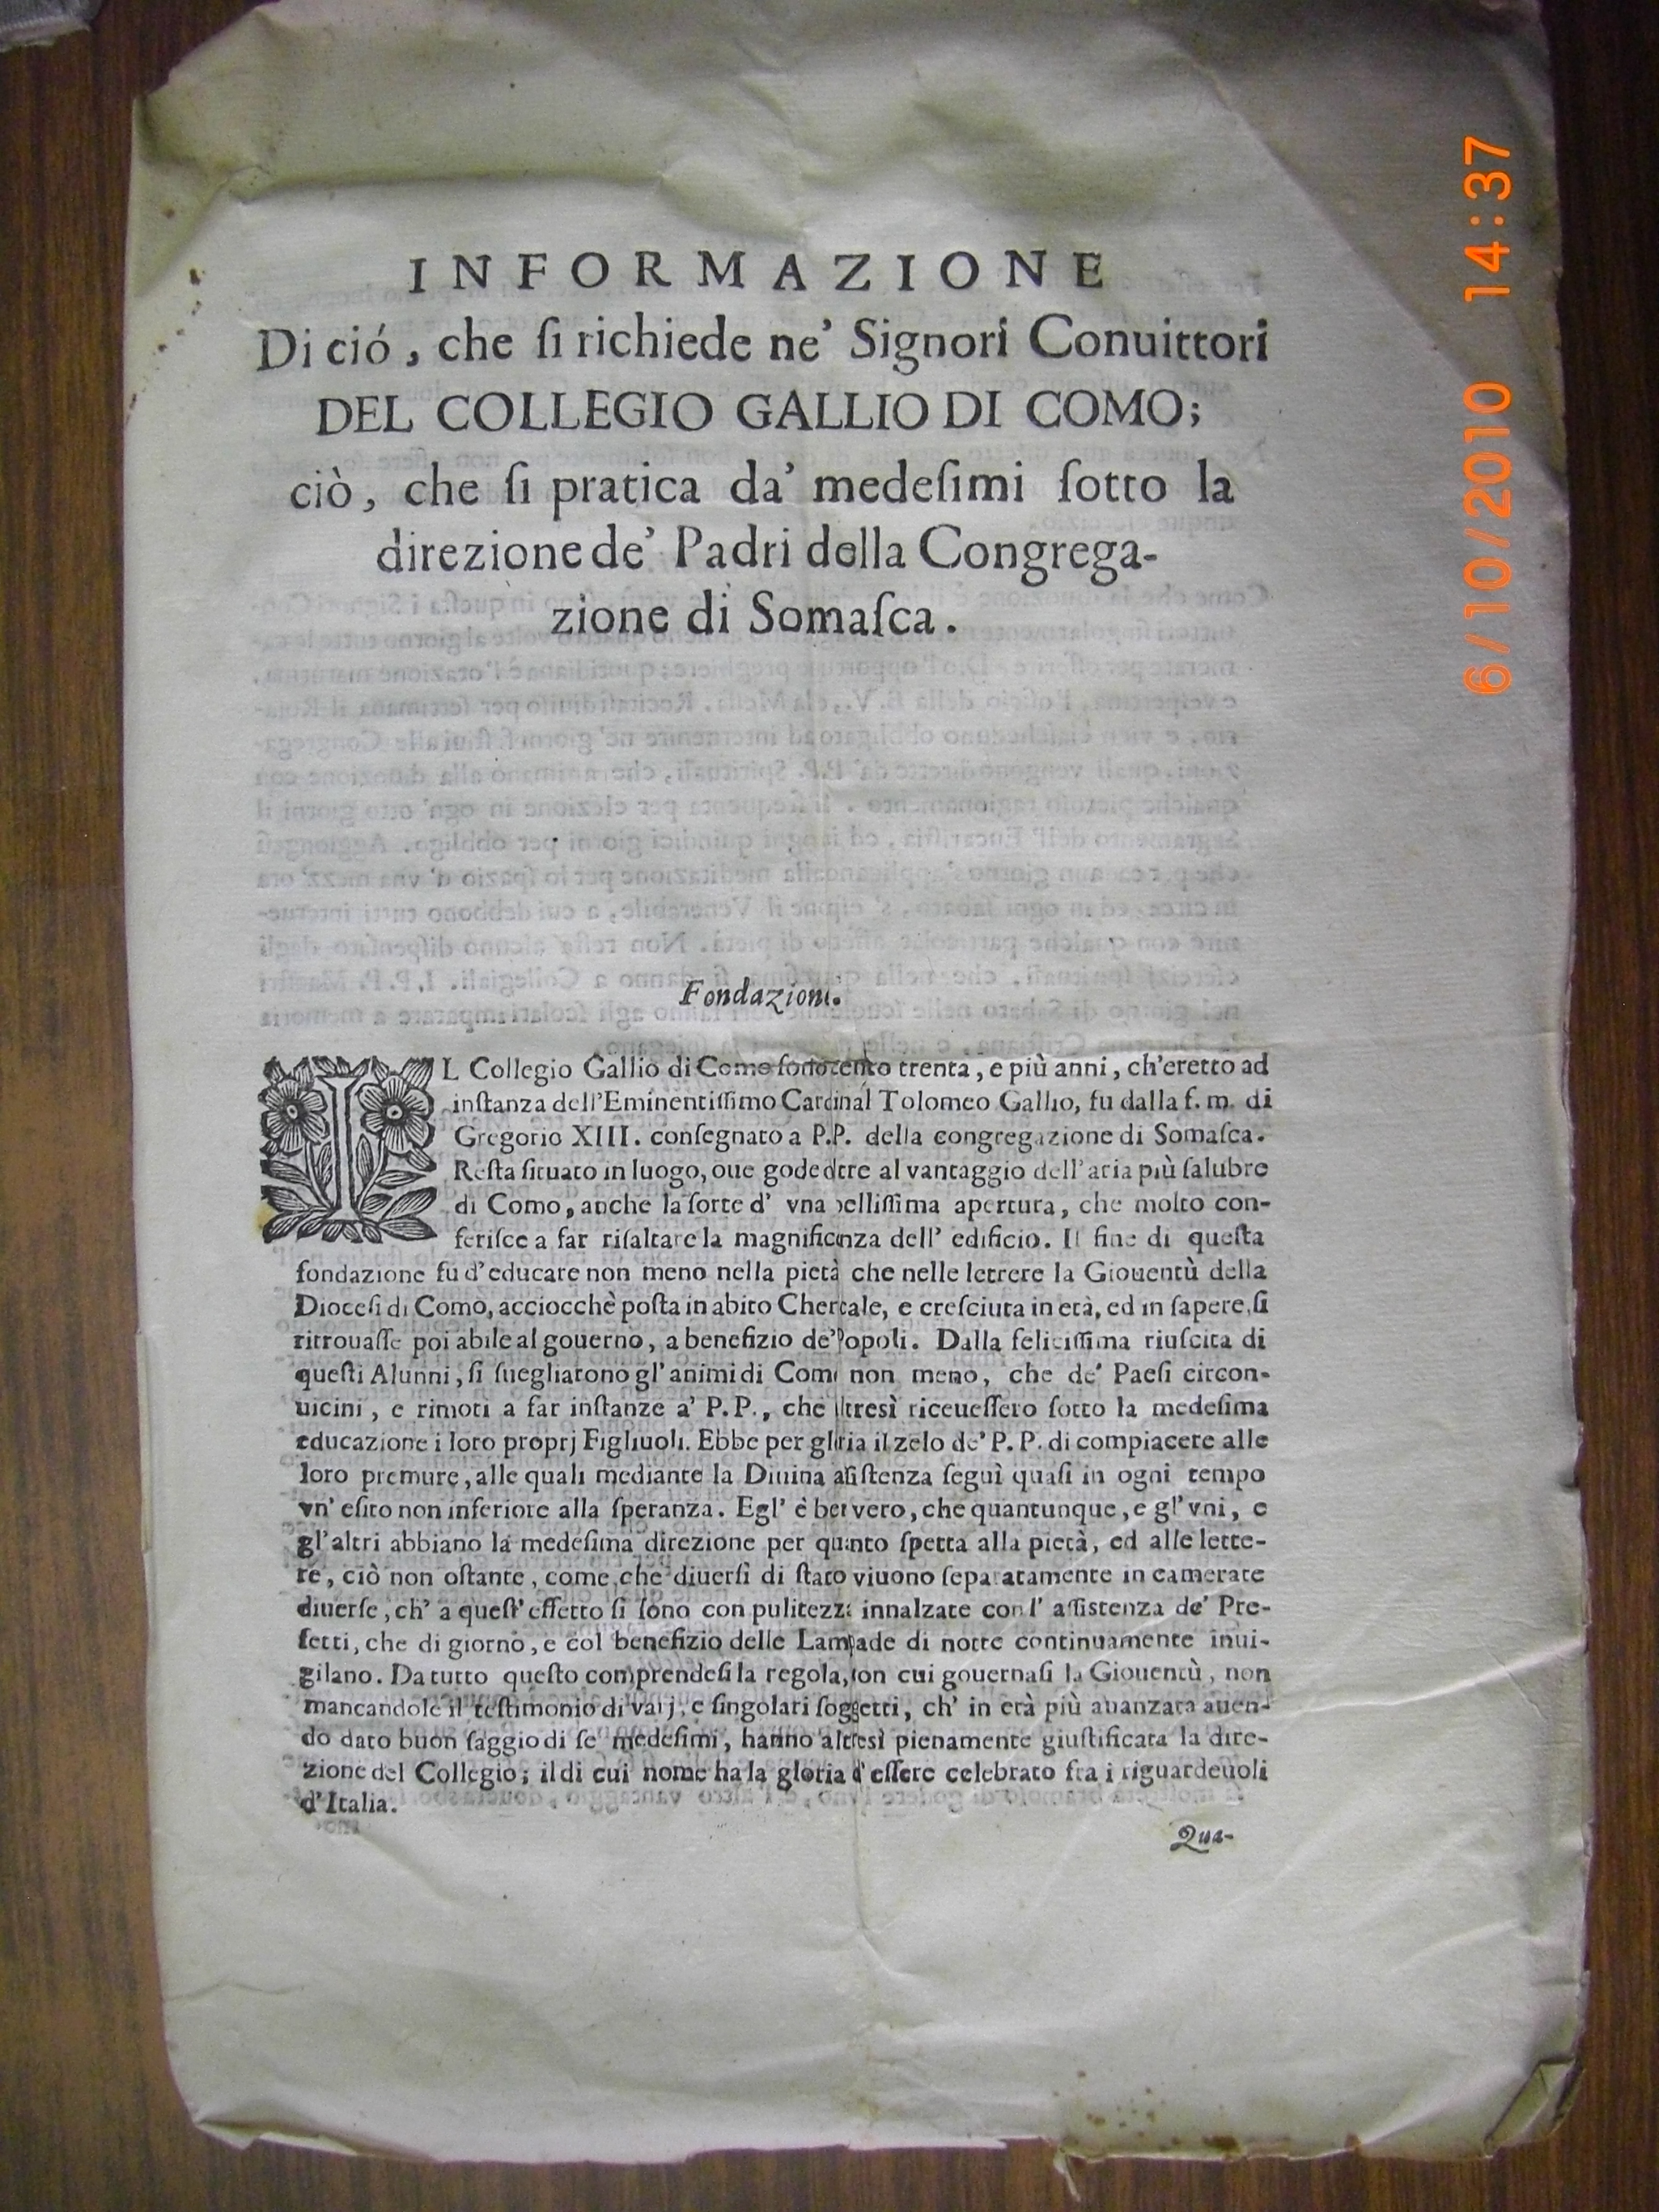 INFORMAZIONE
Di ció, che ſi richiede ne' Signori Conuittori
DEL COLLEGIO GALLIO DI COMO;
ciò, che ſi pratica da' medeſimi ſotto la
direzione de' Padri della Congrega-
zione di Somaſca.
Fondazione.
IL Collegio Gallio di Como ſono cento trenta, e più anni, ch'eretto ad
inſtanza dell'Eminentiſſimo Cardinal Tolomeo Gallio, fu dalla f. m. di
Gregorio XIII. conſegnato a P.P. della congregazione di Somaſca.
Reſta ſituato in luogo, oue gode oltre al vantaggio dell'aria più ſalubre
di Como, anche la ſorte d' vna belliſſima apertura, che molto con-
feriſce a far riſaltare la magnificenza dell' edificio. Il fine di queſta
fondazione fu d'educare non meno nella pietà che nelle lettere la Giouentù della
Dioceſi di Como, acciocchè poſta in abito Chericale, e creſciuta in età, ed in ſapere, ſi
ritrouaſſe poi abile al gouerno, a benefizio de' Popoli. Dalla feliciſſima riuſcita di
queſti Alunni, ſi ſuegliarono gl' animi di Como non meno, che de' Paeſi circon-
uicini, e rimoti a far inſtanze a' P.P., che altresì riceueſſero ſotto la medeſima
educazione i loro proprj Figliuoli. Ebbe per gloria il zelo de' P.P. di compiacere alle
loro premure, alle quali mediante la Diuina aſſiſtenza ſeguì quaſi in ogni tempo
vn' eſito non inferiore alla ſperanza. Egl' è ben vero, che quantunque, e gl' vni, e
gl'altri abbiano la medeſima direzione per quanto ſpetta alla pietà, ed alle lette-
re, ciò non oſtante, come che diuerſi di ſtato viuono ſeparatamente in camerate
diuerſe, ch' a queſt' effetto ſi ſono con pulitezza innalzate con l' aſſistenza de' Pre-
fetti, che di giorno, e col benefizio delle Lampade di notte continuamente inui-
gilano. Da tutto queſto comprendeſi la regola, con cui gouernaſi la Giouentù, non
mancandole il teſtimonio di varj, e ſingolari ſoggetti, ch' in età più auanzata auen-
do dato buon ſaggio di ſe medeſimi, hanno altresì pienamente giuſtificata la dire-
zione del Collegio; il di cui nome ha la gloria d'eſſere celebrato fra i riguardeuoli
d'Italia.
Qua-
6/10/2010 14:37